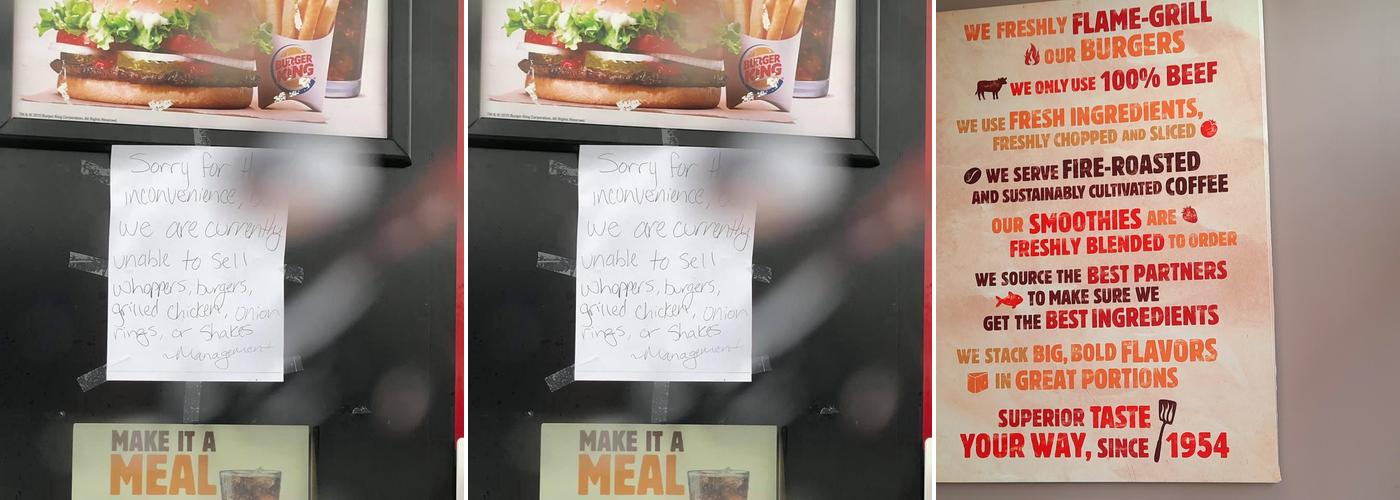 BURGER
KING
TM & © 2015 Burger King Corporation. All Rights Reserved.
Sorry for
inconvenience,
we are currently
unable to sell
whoppers, burgers,
grilled chicken, onion
rings, or shakes
~Management
MAKE IT A
MEAL
BURGER
KING
TM & © 2015 Burger King Corporation. All Rights Reserved.
Sorry for
inconvenience,
we are currently
unable to sell
whoppers, burgers,
grilled chicken, onion
rings, or shakes
~Management
MAKE IT A
MEAL
WE FRESHLY FLAME-GRILL
OUR BURGERS
WE ONLY USE 100% BEEF
WE USE FRESH INGREDIENTS,
FRESHLY CHOPPED AND SLICED
WE SERVE FIRE-ROASTED
AND SUSTAINABLY CULTIVATED COFFEE
OUR SMOOTHIES ARE
FRESHLY BLENDED TO ORDER
WE SOURCE THE BEST PARTNERS
TO MAKE SURE WE
GET THE BEST INGREDIENTS
WE STACK BIG, BOLD FLAVORS
IN GREAT PORTIONS
SUPERIOR TASTE
YOUR WAY, SINCE 1954